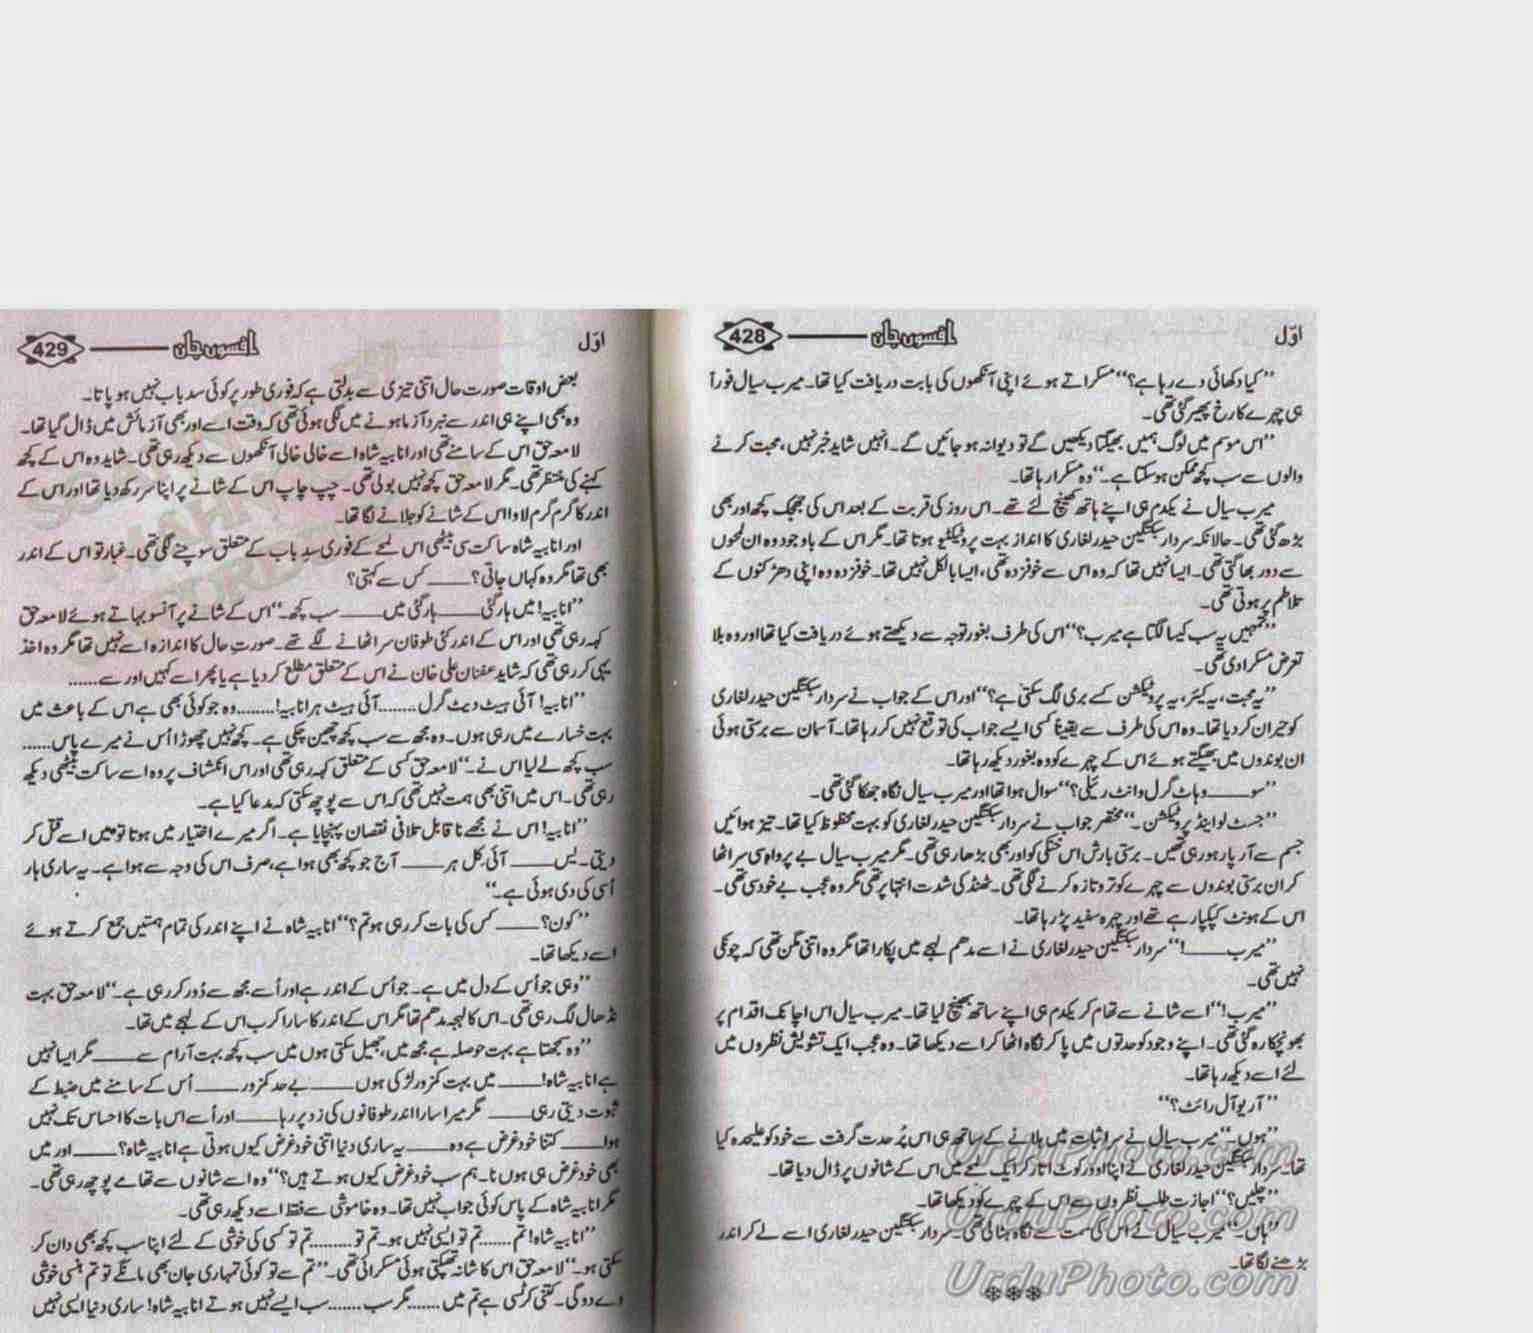 اوّل
افسون جان
428
”کیا دکھائی دے رہا ہے؟“ مسکراتے ہوئے اپنی آنکھوں کی بابت دریافت کیا تھا۔ میرب سیال فوراً
ہی چہرے کا رخ پھیر گئی تھی۔
”اس موسم میں لوگ ہمیں بھیگتا دیکھیں گے تو دیوانہ ہو جائیں گے۔ انہیں شاید خبر نہیں، محبت کرنے
والوں سے سب کچھ ممکن ہو سکتا ہے۔“ وہ مسکرا رہا تھا۔
میرب سیال نے یکدم ہی اپنے ہاتھ کھینچ لئے تھے۔ اس روز کی قربت کے بعد اس کی جھجک کچھ اور بھی
بڑھ گئی تھی۔ حالانکہ سردار سبکتگین حیدر لغاری کا انداز بہت پروٹیکٹیو ہوتا تھا۔ مگر اس کے باوجود وہ ان لمحوں
سے دور بھاگتی تھی۔ ایسا نہیں تھا کہ وہ اس سے خوفزدہ تھی، ایسا بالکل نہیں تھا۔ خوفزدہ وہ اپنی دھڑکنوں کے
تلاطم پر ہوتی تھی۔
”تمہیں یہ سب کیسا لگتا ہے میرب؟“ اس کی طرف بغور توجہ سے دیکھتے ہوئے دریافت کیا تھا اور وہ بلا
تعرض مسکرا دی تھی۔
”یہ محبت، یہ کیئر، یہ پروٹیکشن کسے بری لگ سکتی ہے؟“ اور اس کے جواب نے سردار سبکتگین حیدر لغاری
کو حیران کر دیا تھا۔ وہ اس کی طرف سے یقیناً کسی ایسے جواب کی توقع نہیں کر رہا تھا۔ آسمان سے برستی ہوئی
ان بوندوں میں بھیگتے ہوئے اس کے چہرے کو وہ بغور دیکھ رہا تھا۔
”سو ۔۔۔۔ وہاٹ گرل وانٹ رئیلی؟“ سوال ہوا تھا اور میرب سیال نگاہ جھکا گئی تھی۔
”جسٹ لو اینڈ پروٹیکشن۔“ مختصر جواب نے سردار سبکتگین حیدر لغاری کو بہت محظوظ کیا تھا۔ تیز ہوائیں
جسم سے آر پار ہو رہی تھیں۔ برستی بارش اس خنکی کو اور بھی بڑھا رہی تھی۔ مگر میرب سیال بے پرواہ سی سر اٹھا
کر ان برستی بوندوں سے چہرے کو تروتازہ کرنے لگی تھی۔ ٹھنڈ کی شدت انتہا پر تھی مگر وہ عجب بے خود سی تھی۔
اس کے ہونٹ کپکپا رہے تھے اور چہرہ سفید پڑ رہا تھا۔
”میرب ۔۔۔۔!“ سردار سبکتگین حیدر لغاری نے اسے مدھم لہجے میں پکارا تھا مگر وہ اتنی مگن تھی کہ چونکی
نہیں تھی۔
”میرب!“ اسے شانے سے تھام کر یکدم ہی اپنے ساتھ بھینچ لیا تھا۔ میرب سیال اس اچانک اقدام پر
بھونچکا رہ گئی تھی۔ اپنے وجود کو حدتوں میں پا کر نگاہ اٹھا کر اسے دیکھا تھا۔ وہ عجب ایک تشویش نظروں میں
لئے اسے دیکھ رہا تھا۔
”آر یو آل رائٹ؟“
”ہوں۔“ میرب سیال نے سر اثبات میں ہلانے کے ساتھ ہی اس پُر حدت گرفت سے خود کو علیحدہ کیا
تھا۔ سردار سبکتگین حیدر لغاری نے اپنا اوور کوٹ اتار کر ایک لمحے میں اس کے شانوں پر ڈال دیا تھا۔
”چلیں؟“ اجازت طلب نظروں سے اس کے چہرے کو دیکھا تھا۔
”ہاں۔“ میرب سیال نے اس کی سمت سے نگاہ ہٹا لی تھی۔ سردار سبکتگین حیدر لغاری اسے لے کر اندر
بڑھنے لگا تھا۔
❋❋❋
UrduPhoto.com
UrduPhoto.com
UrduPhoto.com
اوّل
افسون جان
429
بعض اوقات صورت حال اتنی تیزی سے بدلتی ہے کہ فوری طور پر کوئی سدباب نہیں ہو پاتا۔
وہ بھی اپنے ہی اندر سے نبرد آزما ہونے میں لگی ہوئی تھی کہ وقت اسے اور بھی آزمائش میں ڈال گیا تھا۔
لامعہ حق اس کے سامنے تھی اور انابیہ شاہ اسے خالی خالی آنکھوں سے دیکھ رہی تھی۔ شاید وہ اس کے کچھ
کہنے کی منتظر تھی۔ مگر لامعہ حق کچھ نہیں بولی تھی۔ چپ چاپ اس کے شانے پر اپنا سر رکھ دیا تھا اور اس کے
اندر کا گرم گرم لاوا اس کے شانے کو جلانے لگا تھا۔
اور انابیہ شاہ ساکت سی بیٹھی اس لمحے کے فوری سدِ باب کے متعلق سوچنے لگی تھی۔ غبار تو اس کے اندر
بھی تھا مگر وہ کہاں جاتی؟ ۔۔۔۔ کس سے کہتی؟
”انابیہ! میں ہار گئی ۔۔۔۔ ہار گئی میں ۔۔۔۔ سب کچھ۔“ اس کے شانے پر آنسو بہاتے ہوئے لامعہ حق
کہہ رہی تھی اور اس کے اندر کئی طوفان سر اٹھانے لگے تھے۔ صورتِ حال کا اندازہ اسے نہیں تھا مگر وہ اخذ
یہی کر رہی تھی کہ شاید عفنان علی خان نے اس کے متعلق مطلع کر دیا ہے یا پھر اسے کہیں اور سے......
”انابیہ! آئی ہیٹ دیٹ گرل ........ آئی ہیٹ ہر انابیہ! ........ وہ جو کوئی بھی ہے اس کے باعث میں
بہت خسارے میں رہی ہوں۔ وہ مجھ سے سب کچھ چھین چکی ہے۔ کچھ نہیں چھوڑا اُس نے میرے پاس ......
سب کچھ لے لیا اس نے۔“ لامعہ حق کسی کے متعلق کہہ رہی تھی اور اس انکشاف پر وہ اسے ساکت بیٹھی دیکھ
رہی تھی۔ اس میں اتنی بھی ہمت نہیں تھی کہ اس سے پوچھ سکتی کہ مدعا کیا ہے۔
”انابیہ! اس نے مجھے ناقابل تلافی نقصان پہنچایا ہے۔ اگر میرے اختیار میں ہوتا تو میں اسے قتل کر
دیتی۔ یس ۔۔۔۔ آئی کل ہر ۔۔۔۔ آج جو کچھ بھی ہوا ہے، صرف اس کی وجہ سے ہوا ہے۔ یہ ساری ہار
اُسی کی دی ہوئی ہے۔“
”کون؟ ۔۔۔۔ کس کی بات کر رہی ہو تم؟“ انابیہ شاہ نے اپنے اندر کی تمام ہمتیں جمع کرتے ہوئے
اسے دیکھا تھا۔
”وہی جو اُس کے دل میں ہے۔ جو اُس کے اندر ہے اور اُسے مجھ سے دُور کر رہی ہے۔“ لامعہ حق بہت
نڈھال لگ رہی تھی۔ اس کا لہجہ مدھم تھا مگر اس کے اندر کا سارا کرب اس کے لہجے میں تھا۔
”وہ سمجھتا ہے بہت حوصلہ ہے مجھ میں، جھیل سکتی ہوں میں سب کچھ بہت آرام سے ۔۔۔۔ مگر ایسا نہیں
ہے انابیہ شاہ! ۔۔۔۔ میں بہت کمزور لڑکی ہوں ۔۔۔۔ بے حد کمزور ۔۔۔۔ اُس کے سامنے میں ضبط کے
ثبوت دیتی رہی ۔۔۔۔ مگر میرا سارا اندر طوفانوں کی زد پر رہا ۔۔۔۔ اور اُسے اس بات کا احساس تک نہیں
ہوا ۔۔۔۔ کتنا خود غرض ہے وہ ۔۔۔۔ یہ ساری دنیا اتنی خود غرض کیوں ہوتی ہے انابیہ شاہ؟ ۔۔۔۔ اور میں
بھی خود غرض ہی ہوں نا۔ ہم سب خود غرض کیوں ہوتے ہیں؟“ وہ اسے شانوں سے تھامے پوچھ رہی تھی۔
مگر انابیہ شاہ کے پاس کوئی جواب نہیں تھا۔ وہ خاموشی سے فقط اسے دیکھ رہی تھی۔
”انابیہ شاہ! تم ....... تم تو ایسی نہیں ہو۔ تم تو ......... تم تو کسی کی خوشی کے لئے اپنا سب کچھ بھی دان کر
سکتی ہو۔“ لامعہ حق اس کا شانہ تھپکتی ہوئی مسکرائی تھی۔ ”تم سے تو کوئی تمہاری جان بھی مانگے تو تم ہنسی خوشی
دے دو گی۔ کتنی کرٹسی ہے تم میں ....... مگر سب ....... سب ایسے نہیں ہوتے انابیہ شاہ! ساری دنیا ایسی نہیں